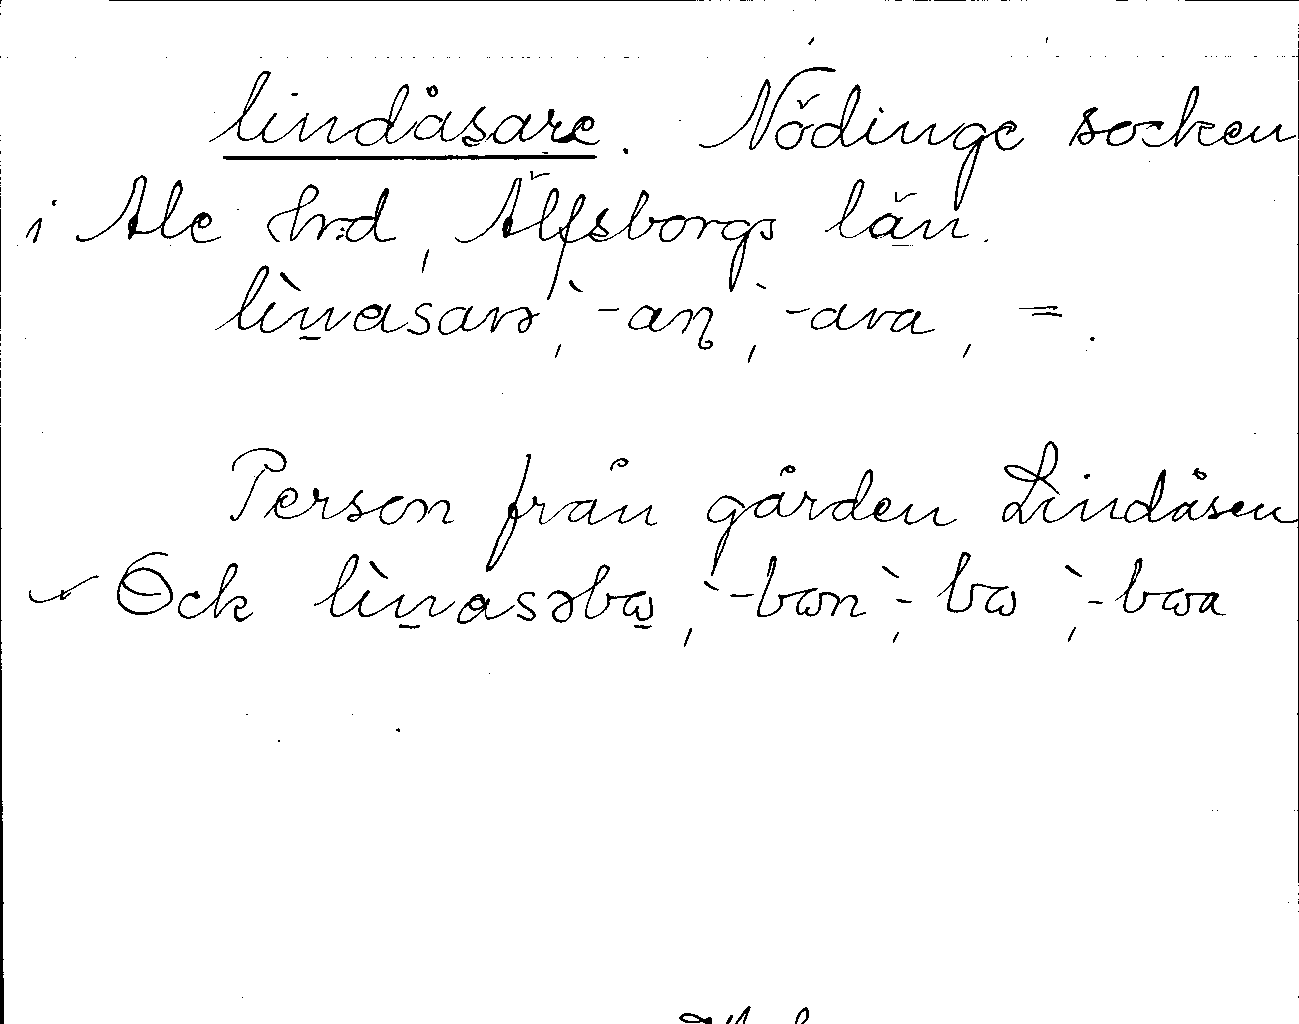 lindåsare. Nödinge socken
i Ale hrd, Älfsborgs län.
lìn̲asarə, `-aŋ, `-ara, =.
Person från gården Lindåsen
Ock lìn̲asəbɷ̲, `-bɷn, `-bɷ, `-bɷa